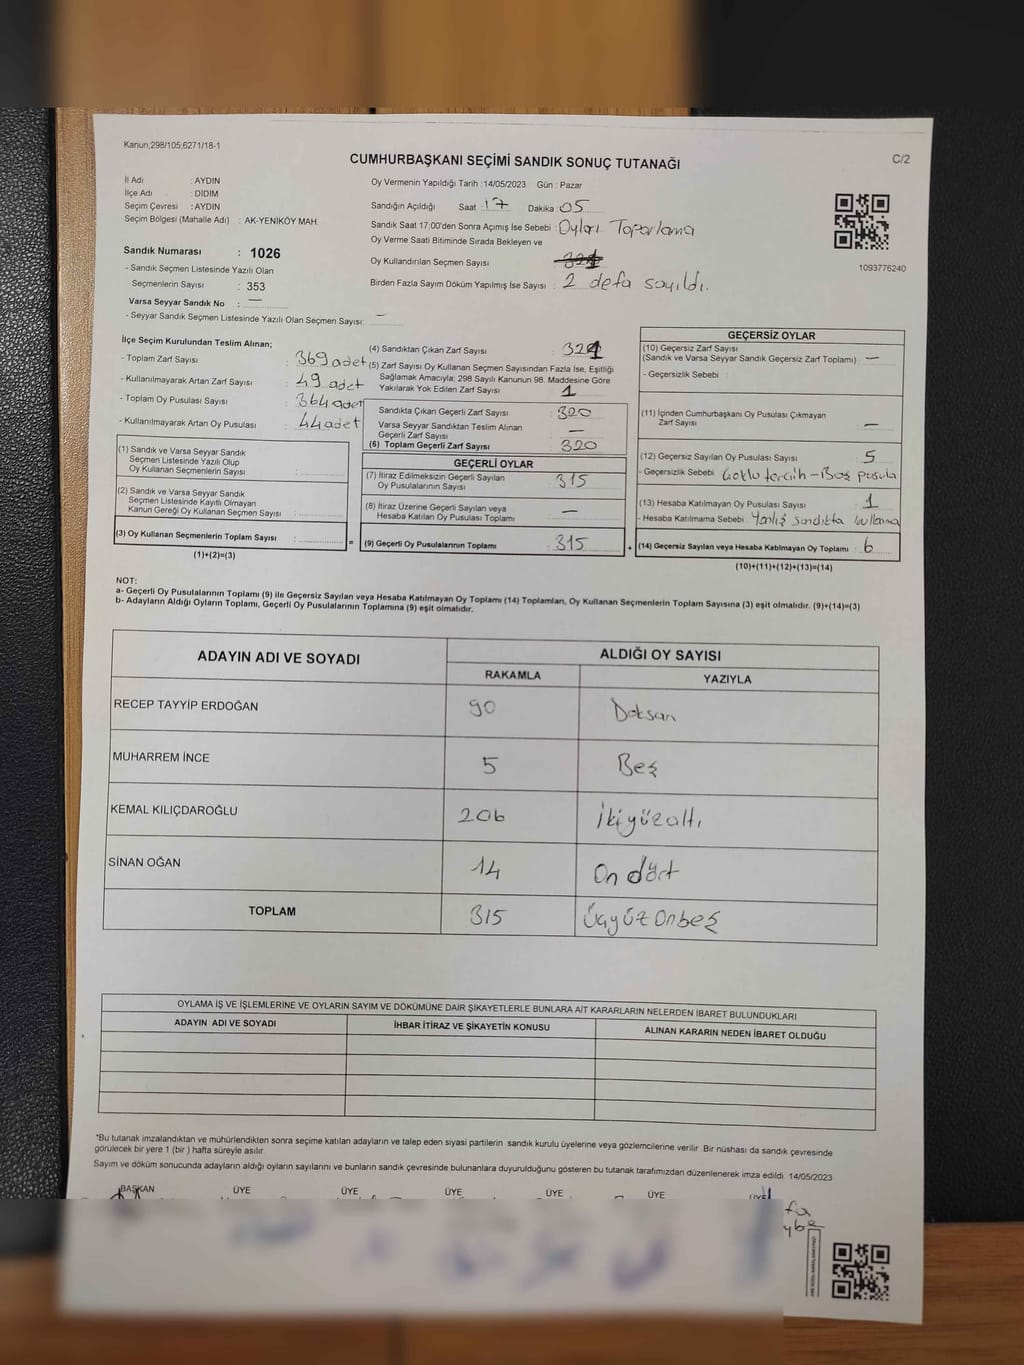 Kanun;298/105;6271/18-1
CUMHURBAŞKANI SEÇİMİ SANDIK SONUÇ TUTANAĞI
C/2
İl Adı : AYDIN
İlçe Adı : DİDİM
Seçim Çevresi : AYDIN
Seçim Bölgesi (Mahalle Adı) : AK-YENİKÖY MAH.
Sandık Numarası : 1026
- Sandık Seçmen Listesinde Yazılı Olan
Seçmenlerin Sayısı : 353
Varsa Seyyar Sandık No : —
- Seyyar Sandık Seçmen Listesinde Yazılı Olan Seçmen Sayısı: —
Oy Vermenin Yapıldığı Tarih :14/05/2023 Gün : Pazar
Sandığın Açıldığı Saat : 17 Dakika : 05
Sandık Saat 17:00'den Sonra Açımış İse Sebebi : Oyları Toparlama
Oy Verme Saati Bitiminde Sırada Bekleyen ve
Oy Kullandırılan Seçmen Sayısı
Birden Fazla Sayım Döküm Yapılmış İse Sayısı : 2 defa sayıldı.
1093776240
İlçe Seçim Kurulundan Teslim Alınan;
- Toplam Zarf Sayısı : 369 adet
- Kullanılmayarak Artan Zarf Sayısı : 49 adet
- Toplam Oy Pusulası Sayısı : 364 adet
- Kullanılmayarak Artan Oy Pusulası : 44 adet
(1) Sandık ve Varsa Seyyar Sandık
Seçmen Listesinde Yazılı Olup
Oy Kullanan Seçmenlerin Sayısı :
(2) Sandık ve Varsa Seyyar Sandık
Seçmen Listesinde Kayıtlı Olmayan
Kanun Gereği Oy Kullanan Seçmen Sayısı :
(3) Oy Kullanan Seçmenlerin Toplam Sayısı : =
(1)+(2)=(3)
(4) Sandıktan Çıkan Zarf Sayısı : 321
(5) Zarf Sayısı Oy Kullanan Seçmen Sayısından Fazla İse, Eşitliği
Sağlamak Amacıyla; 298 Sayılı Kanunun 98. Maddesine Göre
Yakılarak Yok Edilen Zarf Sayısı : 1
Sandıkta Çıkan Geçerli Zarf Sayısı : 320
Varsa Seyyar Sandıktan Teslim Alınan
Geçerli Zarf Sayısı : —
(6) Toplam Geçerli Zarf Sayısı : 320
GEÇERLİ OYLAR
(7) İtiraz Edilmeksizin Geçerli Sayılan
Oy Pusulalarının Sayısı : 315
(8) İtiraz Üzerine Geçerli Sayılan veya
Hesaba Katılan Oy Pusulası Toplamı : —
(9) Geçerli Oy Pusulalarının Toplamı : 315 +
GEÇERSİZ OYLAR
(10) Geçersiz Zarf Sayısı
(Sandık ve Varsa Seyyar Sandık Geçersiz Zarf Toplamı) : —
- Geçersizlik Sebebi :
(11) İçinden Cumhurbaşkanı Oy Pusulası Çıkmayan
Zarf Sayısı : —
(12) Geçersiz Sayılan Oy Pusulası Sayısı : 5
- Geçersizlik Sebebi : Çoklu tercih-Boş pusula
(13) Hesaba Katılmayan Oy Pusulası Sayısı : 1
- Hesaba Katılmama Sebebi : Yanlış sandıkta kullama
(14) Geçersiz Sayılan veya Hesaba Katılmayan Oy Toplamı : 6
(10)+(11)+(12)+(13)=(14)
NOT:
a- Geçerli Oy Pusulalarının Toplamı (9) ile Geçersiz Sayılan veya Hesaba Katılmayan Oy Toplamı (14) Toplamları, Oy Kullanan Seçmenlerin Toplam Sayısına (3) eşit olmalıdır. (9)+(14)=(3)
b- Adayların Aldığı Oyların Toplamı, Geçerli Oy Pusulalarının Toplamına (9) eşit olmalıdır.
ADAYIN ADI VE SOYADI
ALDIĞI OY SAYISI
RAKAMLA YAZIYLA
RECEP TAYYİP ERDOĞAN 90 Doksan
MUHARREM İNCE 5 Beş
KEMAL KILIÇDAROĞLU 206 İkiyüzaltı
SİNAN OĞAN 14 On dört
TOPLAM 315 Üçyüz Onbeş
OYLAMA İŞ VE İŞLEMLERİNE VE OYLARIN SAYIM VE DÖKÜMÜNE DAİR ŞİKAYETLERLE BUNLARA AİT KARARLARIN NELERDEN İBARET BULUNDUKLARI
ADAYIN ADI VE SOYADI İHBAR İTİRAZ VE ŞİKAYETİN KONUSU ALINAN KARARIN NEDEN İBARET OLDUĞU
*Bu tutanak imzalandıktan ve mühürlendikten sonra seçime katılan adayların ve talep eden siyasi partilerin sandık kurulu üyelerine veya gözlemcilerine verilir. Bir nüshası da sandık çevresinde
görülecek bir yere 1 (bir) hafta süreyle asılır.
Sayım ve döküm sonucunda adayların aldığı oyların sayılarını ve bunların sandık çevresinde bulunanlara duyurulduğunu gösteren bu tutanak tarafımızdan düzenlenerek imza edildi. 14/05/2023
BAŞKAN ÜYE ÜYE ÜYE ÜYE ÜYE ÜYE